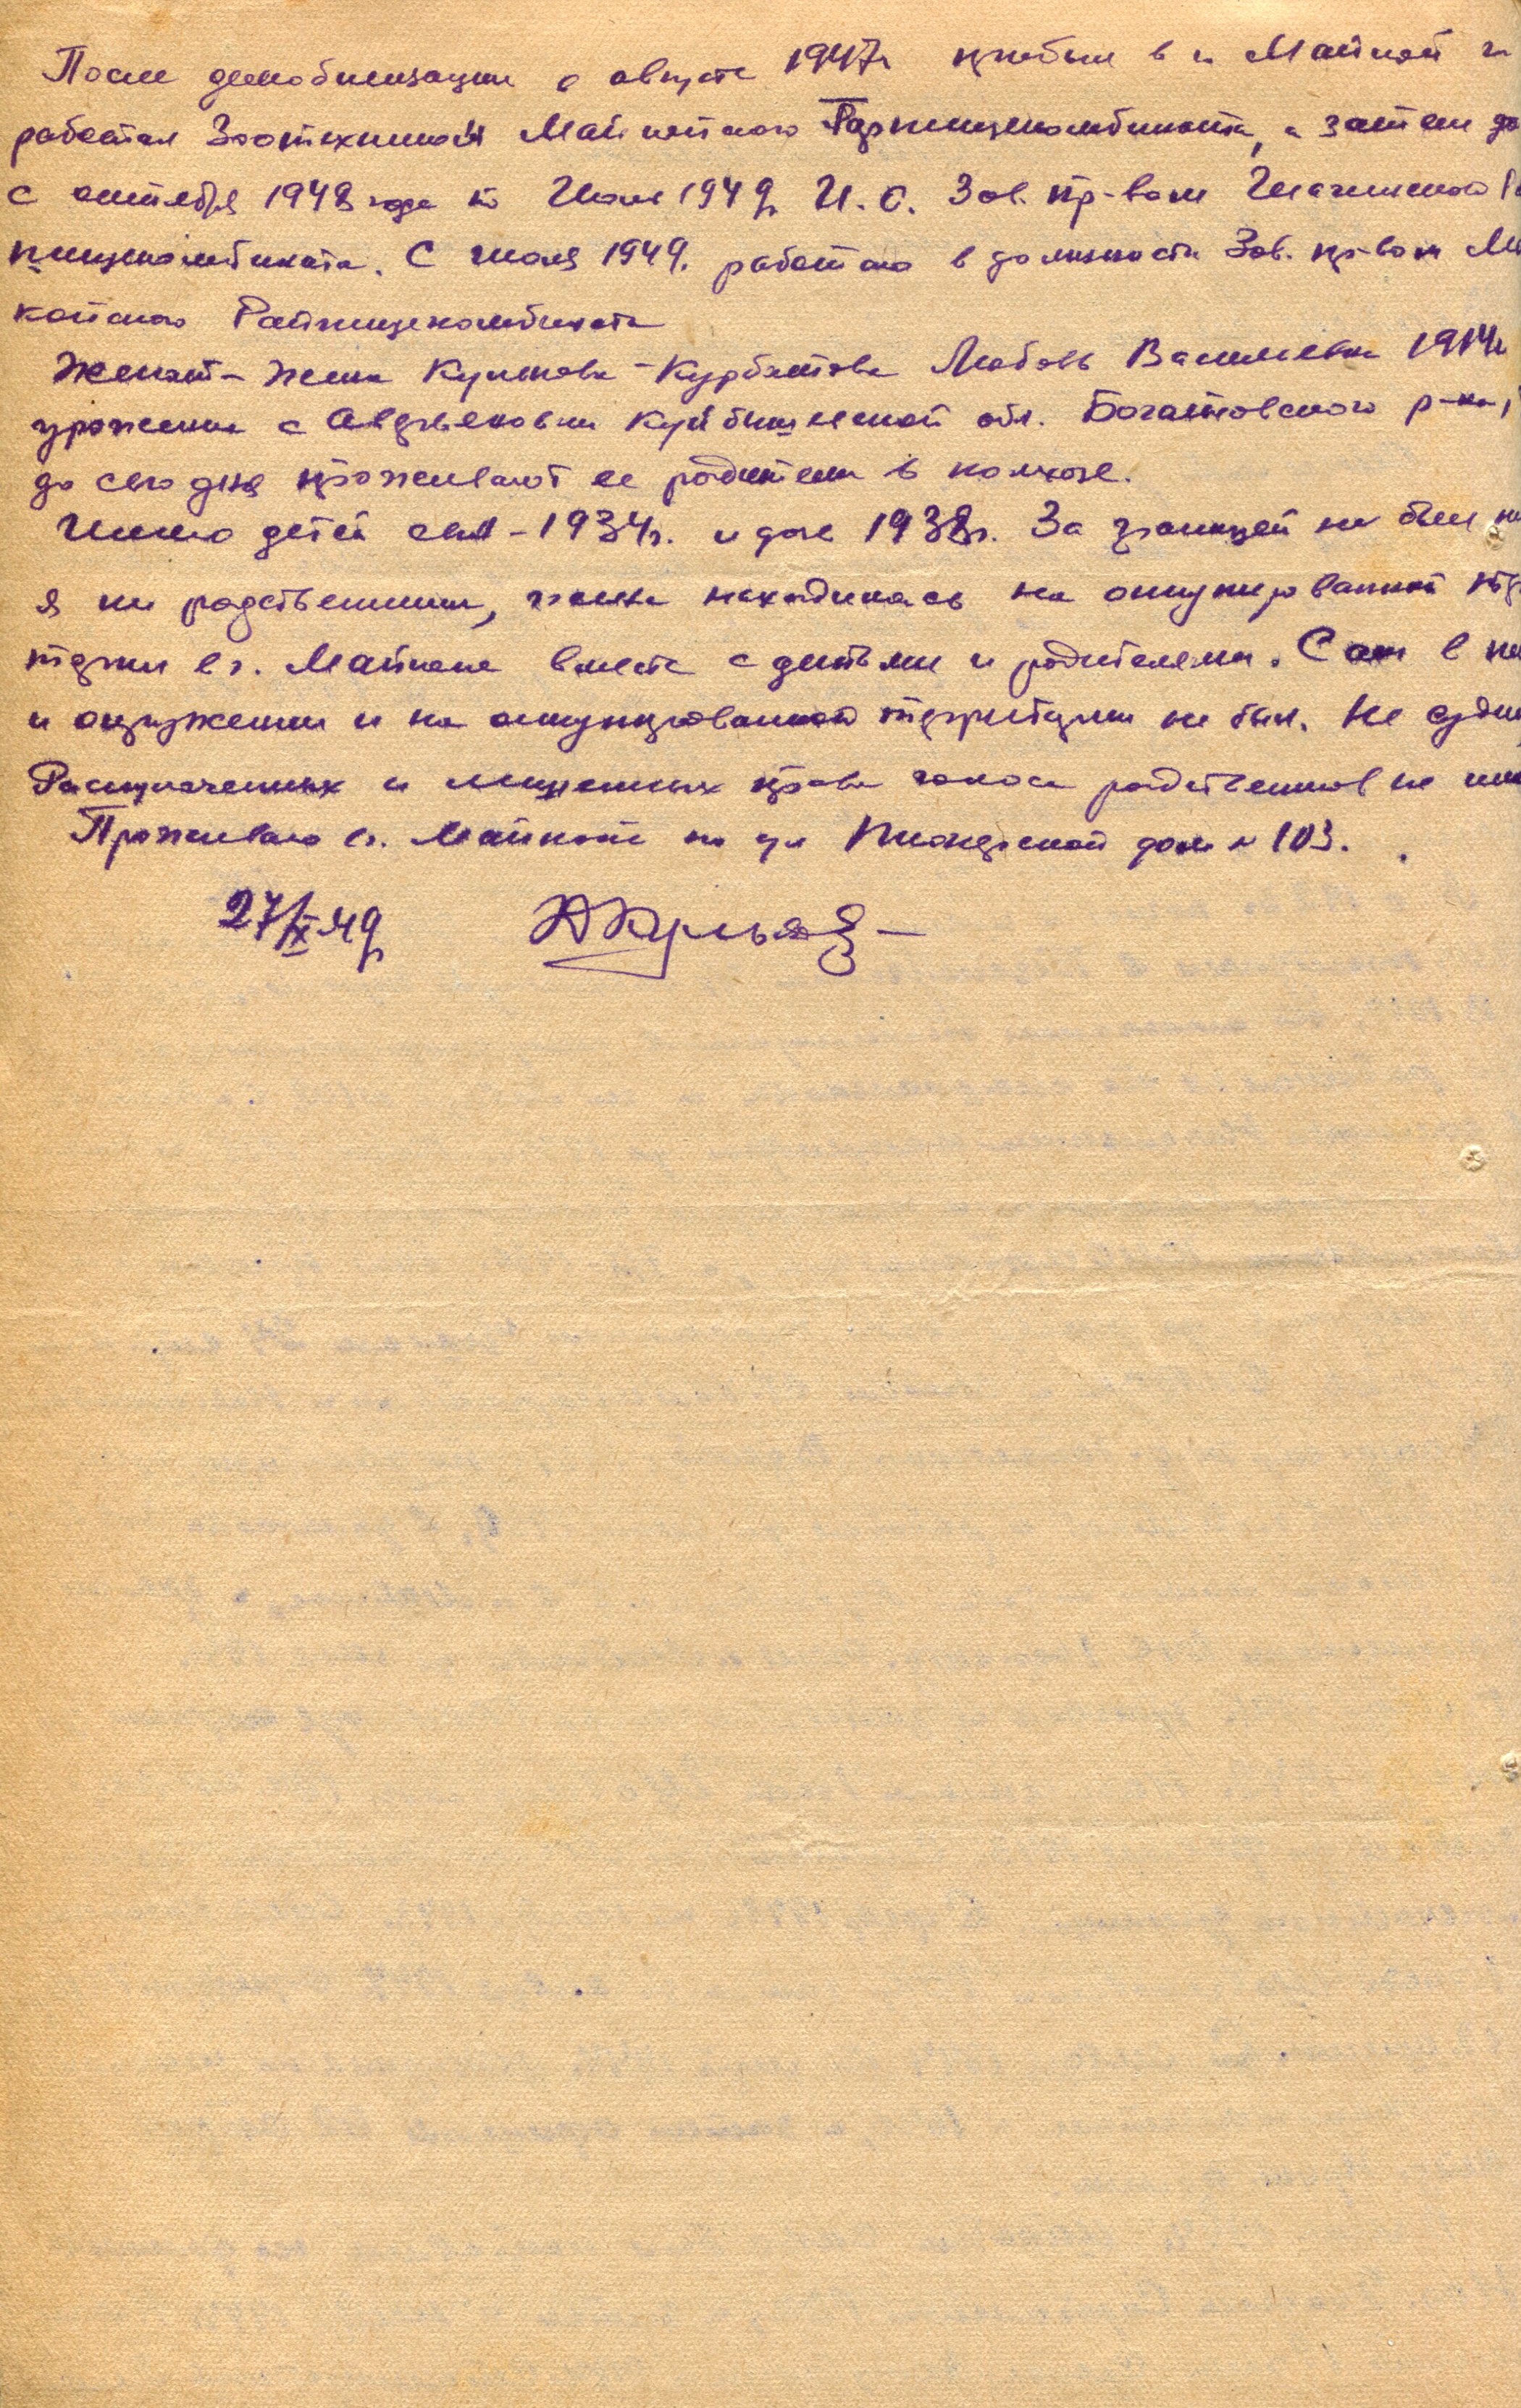 После демобилизации в августе 1947г прибыл в г. Майкоп
работал Зоотехником Майкопского Горпищекомбината, а затем
с октября 1948 года по Июль 1949г И.О. Зав. пр-вом
пищекомбината. С июля 1949. работаю в должности Зав. пр-вом Май
копского Райпищекомбината
Женат – жена Любовь Васильевна 1914г
уроженка с Куйбышевской обл. Богатовского р-на,
до сего дня проживают ее родители в колхозе.
Имею детей сын – 1934г. и дочь 1938г. За границей не был ни
я ни родственники, жена находилась на оккупированной тер
ритории в г. Майкопе вместе с детьми и родителями. Сам в
и окружении и на оккупированной территории не был. Не
Раскулаченных и лишенных права голоса родственников не
Проживаю в г. Майкопе по ул Пионерской дом № 103.
27/IX 49г